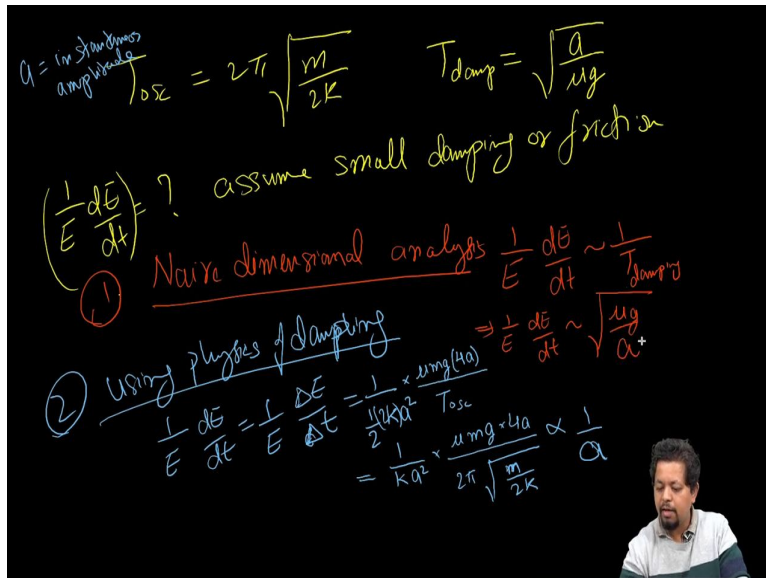 a = instantness
amplitude
T_osc = 2π √(m/2K)
T_damp = √(a/μg)
(1/E dE/dt) = ? assume small damping or friction
1 Naive dimensional analysis 1/E dE/dt ~ 1/T_damping
⇒ 1/E dE/dt ~ √(μg/a)
2 using physics of dampling
1/E dE/dt = 1/E ΔE/Δt = 1/(1/2(2K)a²) × μmg(4a)/T_osc
= 1/Ka² × μmg×4a/(2π √(m/2K)) ∝ 1/a